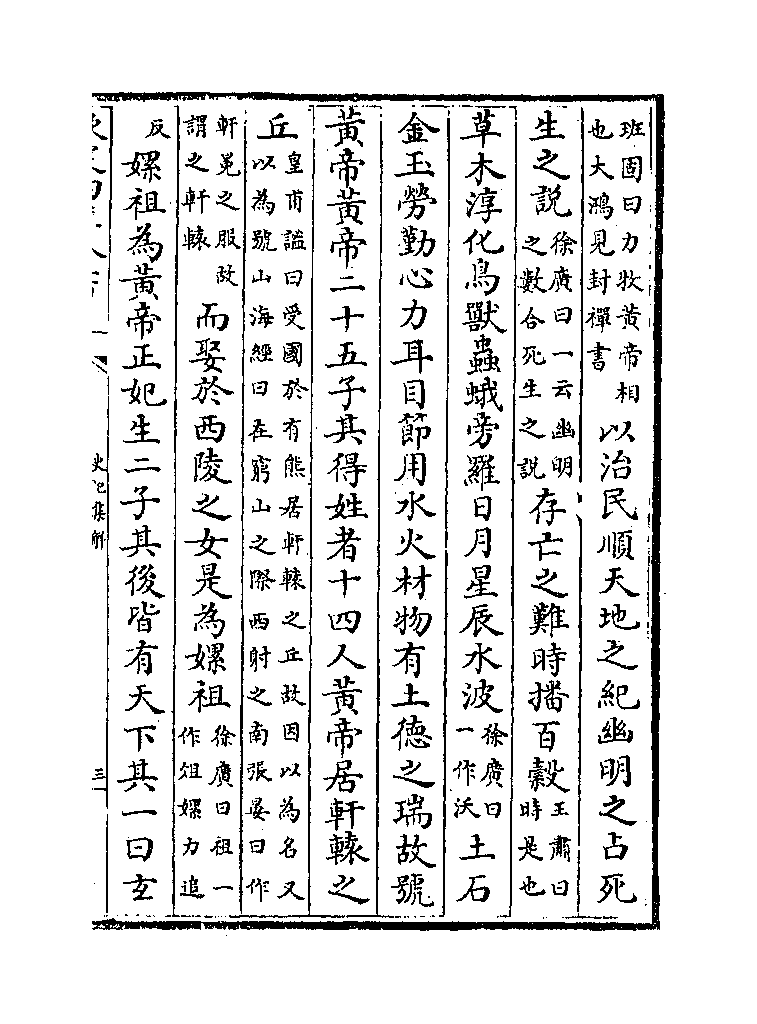 班固曰力牧黃帝相
也大鴻見封禪書
以治民順天地之紀幽明之占死
生之說
徐廣曰一云幽明
之數合死生之說
存亡之難時播百穀
王肅曰
時是也
草木淳化鳥獸蟲蛾旁羅日月星辰水波
徐廣曰
一作沃
土石
金玉勞勤心力耳目節用水火材物有土徳之瑞故號
黃帝黃帝二十五子其得姓者十四人黃帝居軒轅之
丘
皇甫謐曰受國於有熊居軒轅之丘故因以為名又
以為號山海經曰在窮山之際西射之南張晏曰作
軒冕之服故
謂之軒轅
而娶於西陵之女是為嫘祖
徐廣曰祖一
作俎嫘力追
反
嫘祖為黃帝正妃生二子其後皆有天下其一曰玄
史記集解
三